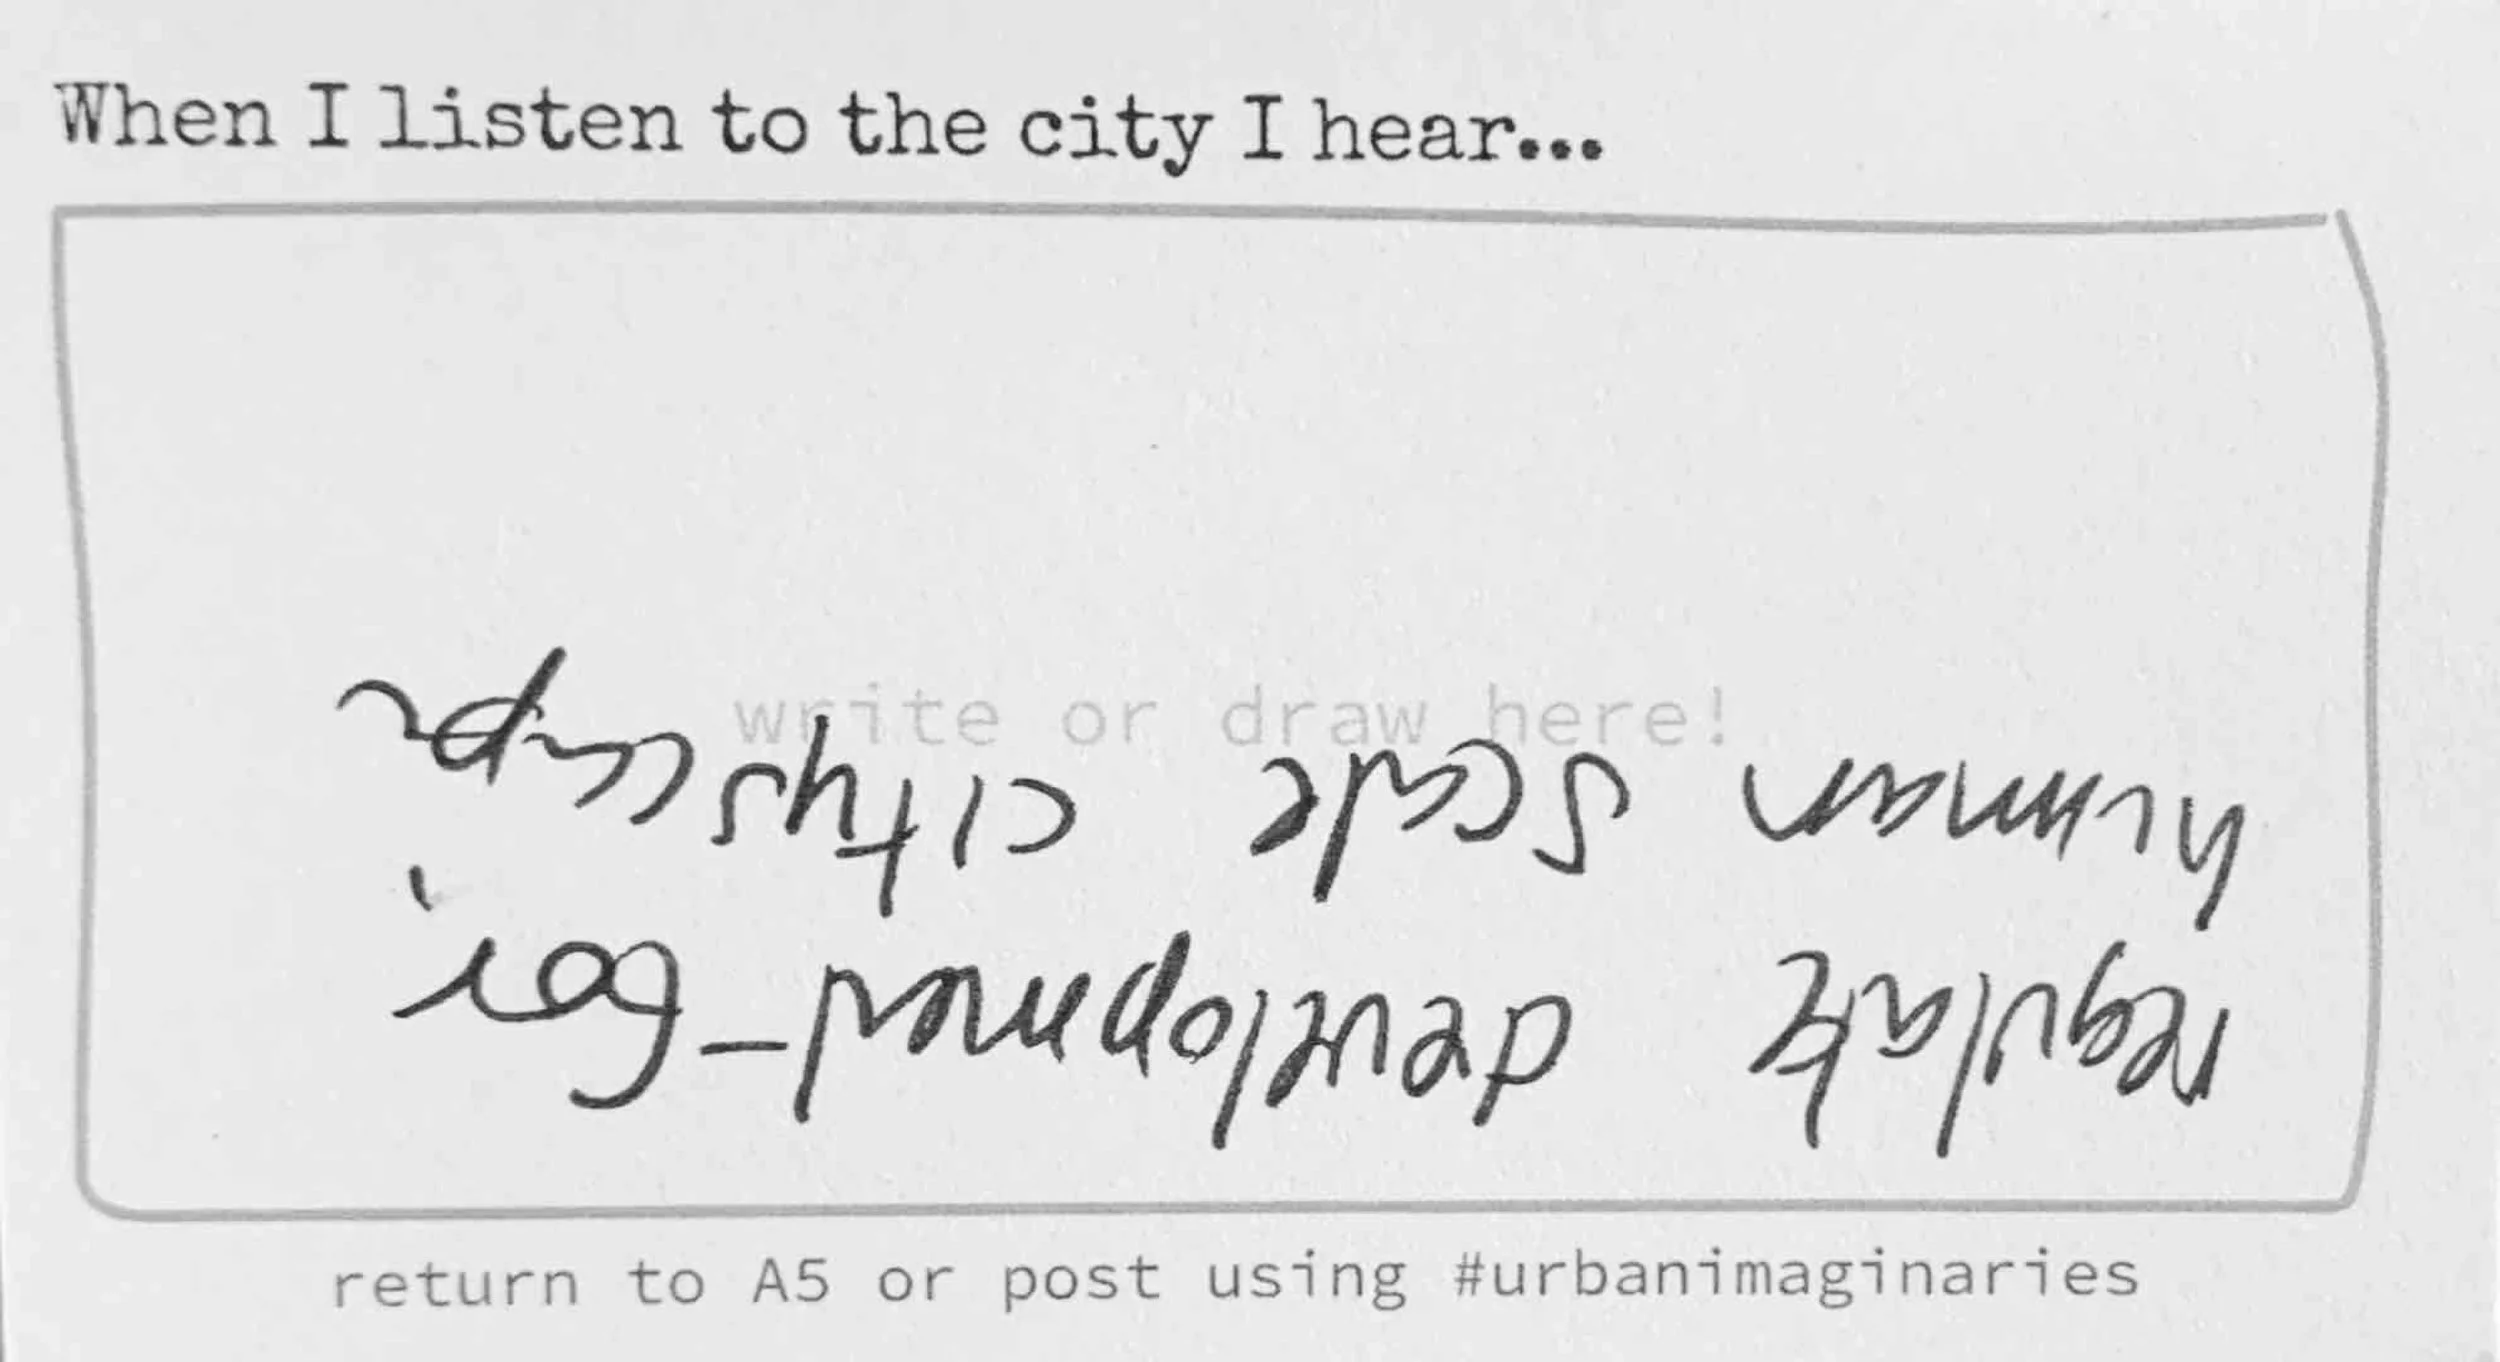 When I listen to the city I hear...
write or draw here!
regulate development - for
human scale cityscape
return to A5 or post using #urbanimaginaries